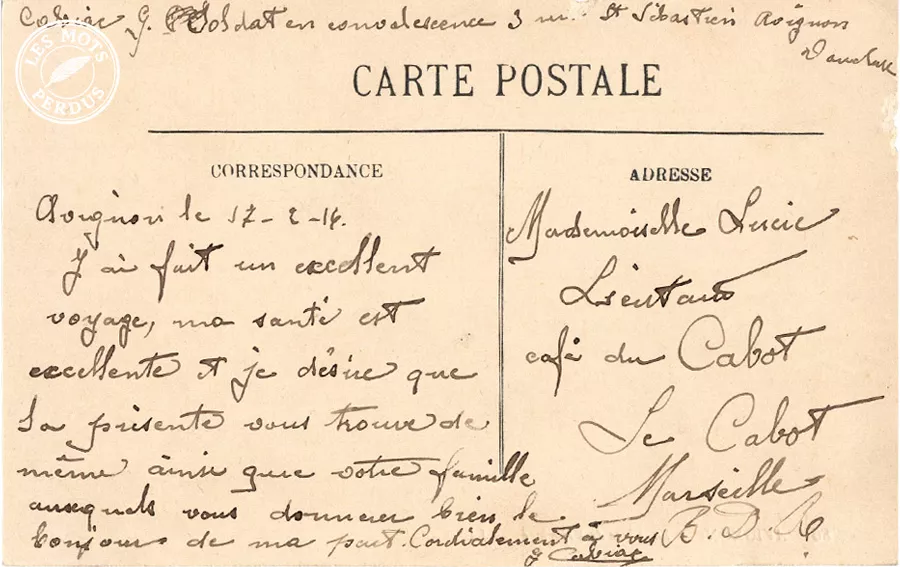 G. Soldat en convalescence 3 rue St Sébastien Avignon
Vaucluse
LES MOTS
PERDUS
CARTE POSTALE
CORRESPONDANCE
Avignon le 17-2-16.
J ai fait un excellent
voyage, ma santé est
excellente et je désire que
la présente vous trouve de
même ainsi que votre famille
auxquels vous donnerer bien le
bonjour de ma part. Cordialement à vous
ADRESSE
Mademoiselle Lucie
café du Cabot
Le Cabot
Marseille
B.D.R